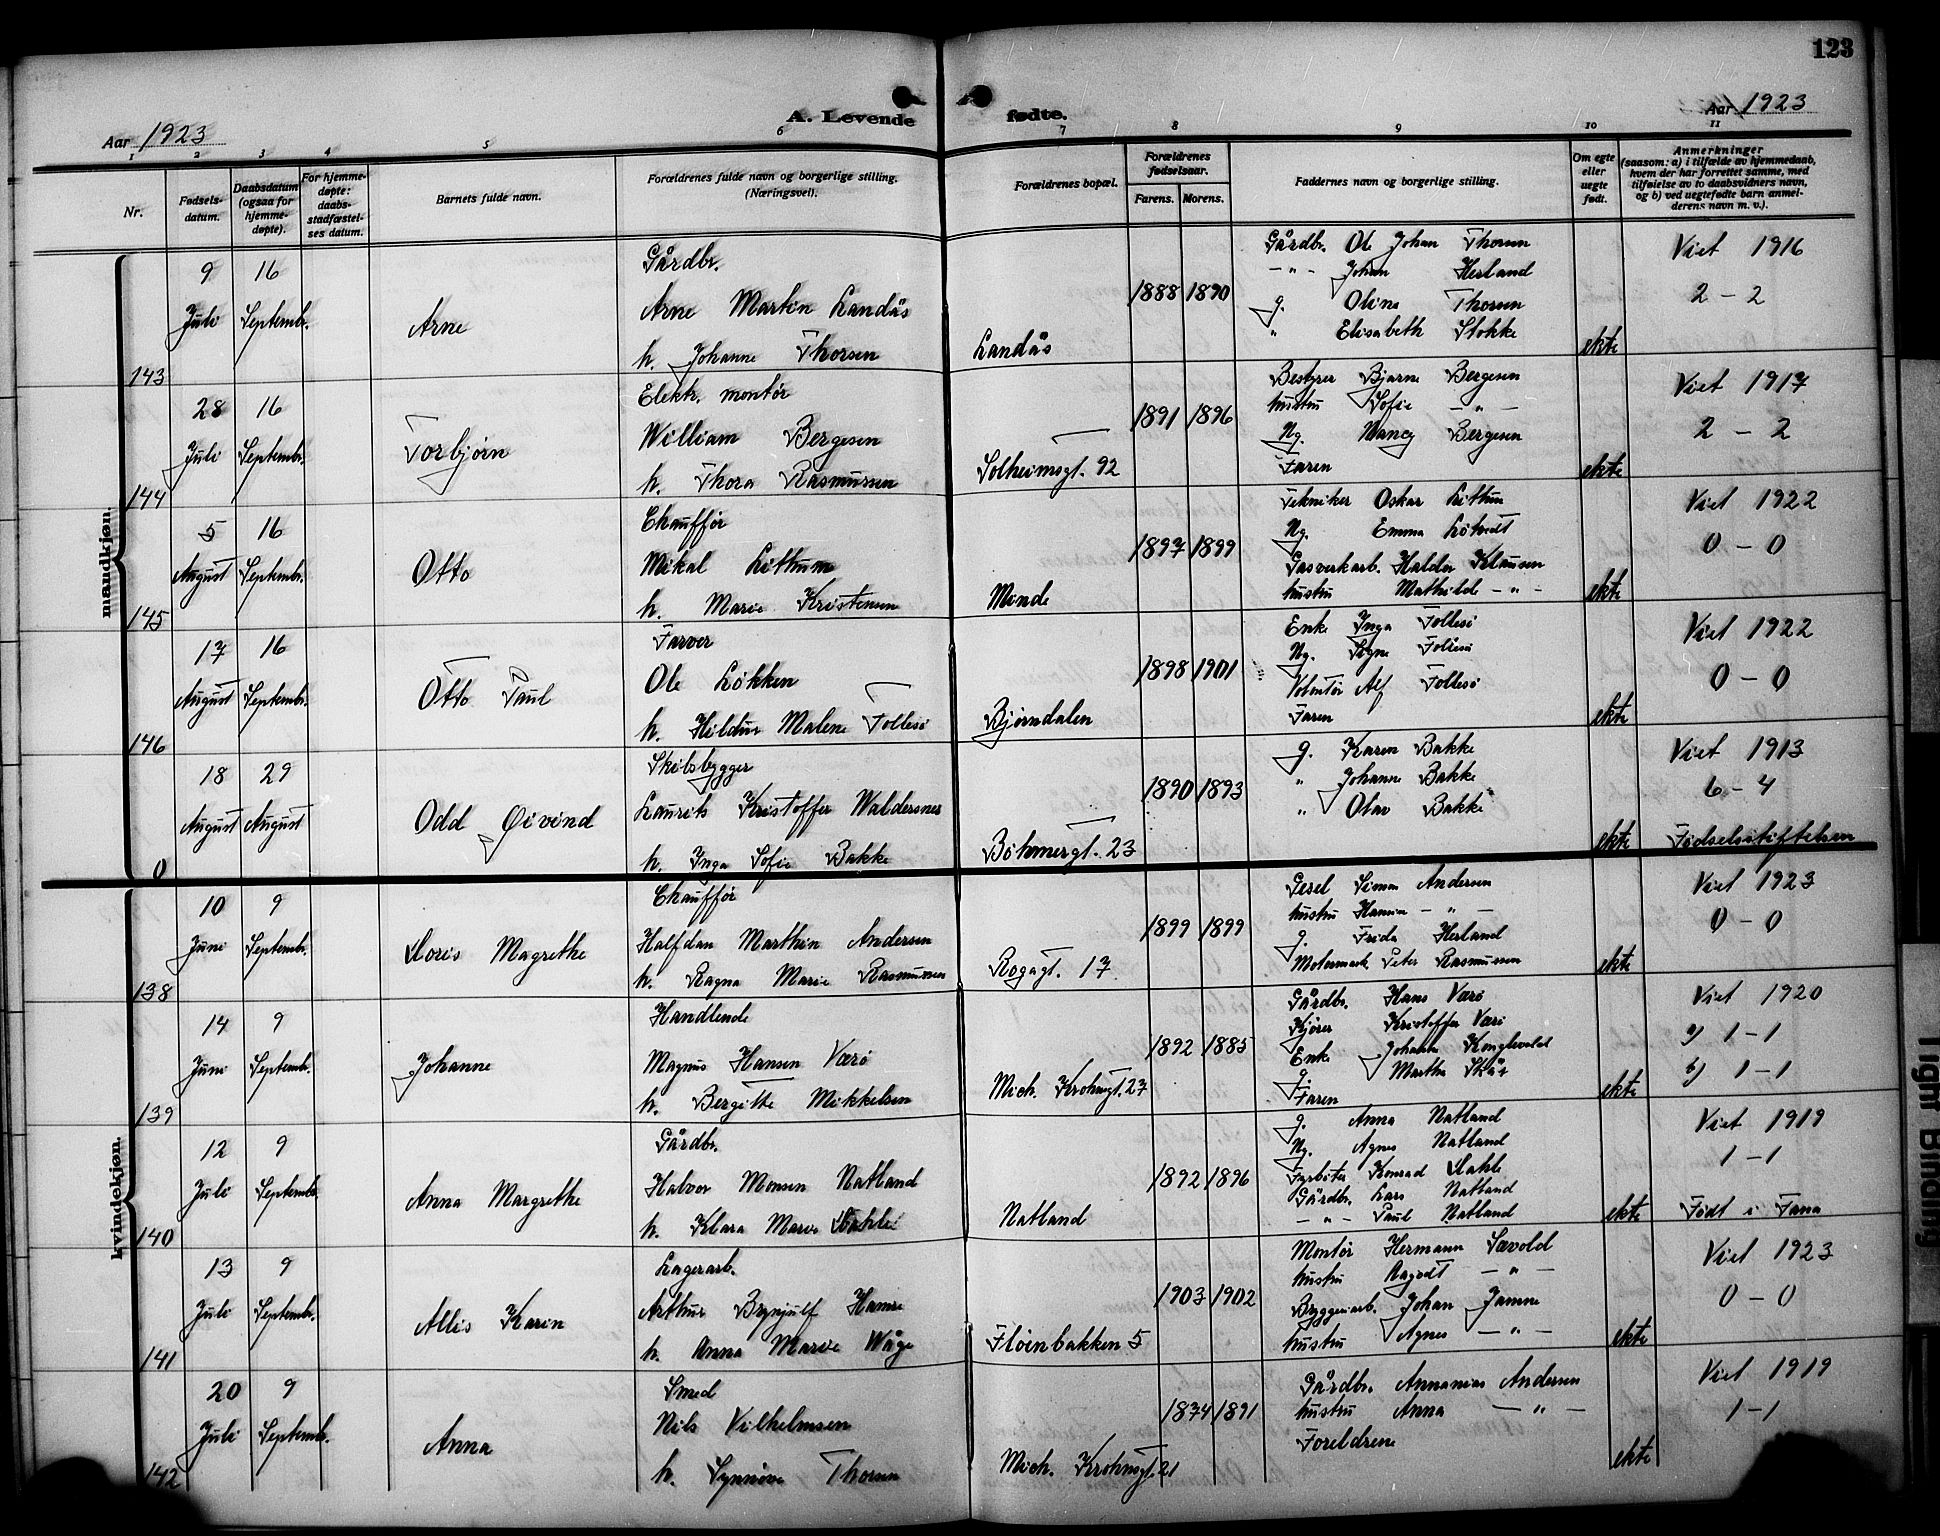 123
Aar 1923
A. Levende fødte.
Aar 1923
1 2 3 4 5 6 7 8 9 10 11
Nr.
Fødsels-
datum.
Daabsdatum
(ogsaa for
hjemme-
døpte).
For hjemme-
døpte:
daabs-
stadfæstel-
ses datum.
Barnets fulde navn.
Forældrenes fulde navn og borgerlige stilling.
(Næringsvei).
Forældrenes bopæl.
Forældrenes
fødselsaar.
Farens. Morens.
Faddernes navn og borgerlige stilling.
Om egte
eller
uegte
født.
Anmerkninger
(saasom: a) i tilfælde av hjemmedaab,
hvem der har forrettet samme, med
tilføielse av to daabsvidners navn,
og b) ved uegtefødte barn anmel-
derens navn m. v.).
mandkjøn.
143
9 Juli
16 Septembr.
Arne
Gårdbr.
Arne Martin Landås
h. Johanne Thorsen
Landås
1888 1890
Gårdbr. Ole Johan Thorsen
-"- Johan Herland
g. Olina Thorsen
" Elisabeth Stokke
ekte
Viet 1916
2 - 2
144
28 Juli
16 Septembr.
Torbjørn
Elektr. montør
William Bergesen
h. Thora Rasmussen
Solheimsgt. 92
1891 1896
Bestyrer Bjarne Bergesen
hustru Sofie -"-
Ng. Nancy Bergesen
Faren
ekte
Viet 1917
2 - 2
145
5 August
16 Septembr.
Otto
Chauffør
Mikal Lithun
h. Marie Kristensen
Minde
1897 1899
Tekniker Oskar Lithun
Ng. Emma
Gasverkarb. Haldor Klausen
hustru Mathilde -"-
ekte
Viet 1922
0 - 0
146
17 August
16 Septembr.
Otto Paul
Farver
Ole Løkken
h. Hildur Malene Follesø
Bjørndalen
1898 1901
Enke Inga Follesø
Ng. Signe Follesø
Volontør Alf Follesø
Faren
ekte
Viet 1922
0 - 0
0
18 August
29 August
Odd Øivind
Skibsbygger
Laurits Kristoffer Waldersnes
h. Inga Sofie Bakke
Böhmergt. 23
1890 1893
g. Karen Bakke
" Johanne Bakke
" Olav Bakke
ekte
Viet 1913
6 - 4
Fødselsstiftelsen
kvindekjøn.
138
10 Juni
9 Septembr.
Doris Magrethe
Chauffør
Halfdan Marthin Andersen
h. Ragna Marie Rasmussen
Rogagt. 17
1899 1899
Gesel Simon Andersen
hustru Hanna -"-
g. Frida Herland
Motormask. Peter Rasmussen
ekte
Viet 1923
0 - 0
139
14 Juni
9 Septembr.
Johanne
Handlende
Magnus Hansen Værø
h. Bergitte Mikkelsen
Mich. Krohnsgt. 27
1892 1885
Gårdbr. Hans Værø
Kjører Kristoffer Værø
Enke Johanna
g. Martha
Faren
ekte
Viet 1920
a) 1-1
b) 1-1
140
12 Juli
9 Septembr.
Anna Margrethe
Gårdbr.
Halvor Monsen Natland
h. Klara Marie Dahle
Natland
1892 1896
g. Anna Natland
Ng. Agnes Natland
Fyrbøter Konrad Dahle
Gårdbr. Lars Natland
-"- Paul Natland
ekte
Viet 1919
1-1
Født i Fana
141
13 Juli
9 Septembr.
Allis Karin
Lagerarb.
Arthur Brynjulf Hamre
h. Anna Marie Våge
Fløienbakken 5
1903 1902
Montør Hermann Sævold
hustru Ragodt -"-
Bryggeriarb. Johan Jamne
hustru Agnes -"-
ekte
Viet 1923
0 - 0
142
20 Juli
9 Septembr.
Anna
Smed
Nils Vilhelmsen
h. Synnøve Thorsen
Mich. Krohnsgt. 21
1874 1891
Gårdbr. Annanias Andersen
hustru Anna -"-
Foreldrene
ekte
Viet 1919
1-1
Tight Binding